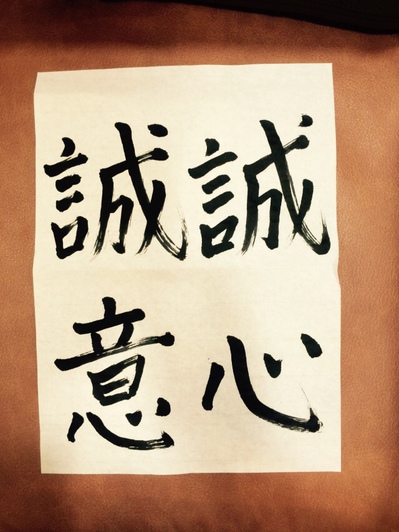 誠心
誠意